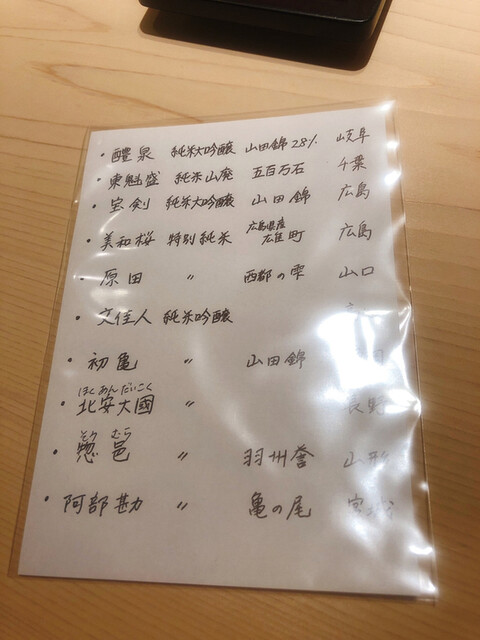 ・醴泉 純米大吟醸 山田錦28% 岐阜
・東魁盛 純米山廃 五百万石 千葉
・宝剣 純米大吟醸 山田錦 広島
・美和桜 特別純米 広島県産 雄町 広島
・原田 〃 西都の雫 山口
・文佳人 純米吟醸
・初亀 〃 山田錦
・北安大國 〃 長野
ほくあんだいこく
・惣邑 〃 羽州誉 山形
そうむら
・阿部勘 〃 亀の尾 宮城